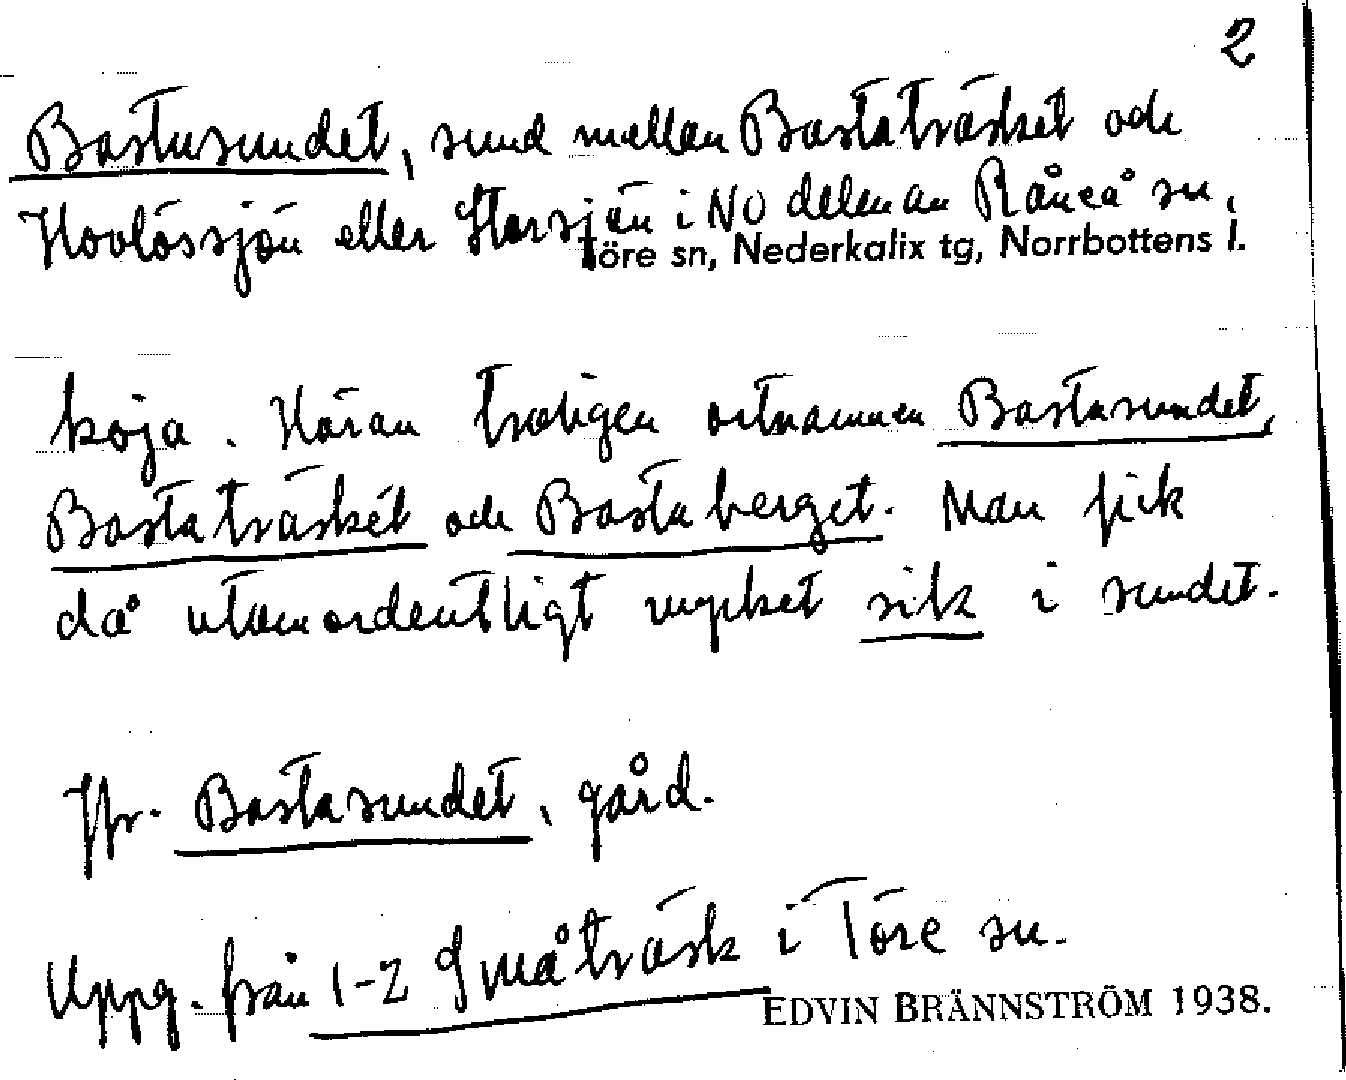 2
Bastusundet, sund mellan Bastaträsket och
Hovlössjön eller Storsjön i NO delen av Råneå sn,
Töre sn, Nederkalix tg, Norrbottens l.
koja. Häran troligen ortnamnen Bastasundet,
Bastaträsket och Bastaberget. Man fick
då utomordentligt mycket sik i sundet.
Jfr. Bastasundet, gård.
Uppg. från 1-2 Småträsk i Töre sn.
EDVIN BRÄNNSTRÖM 1938.